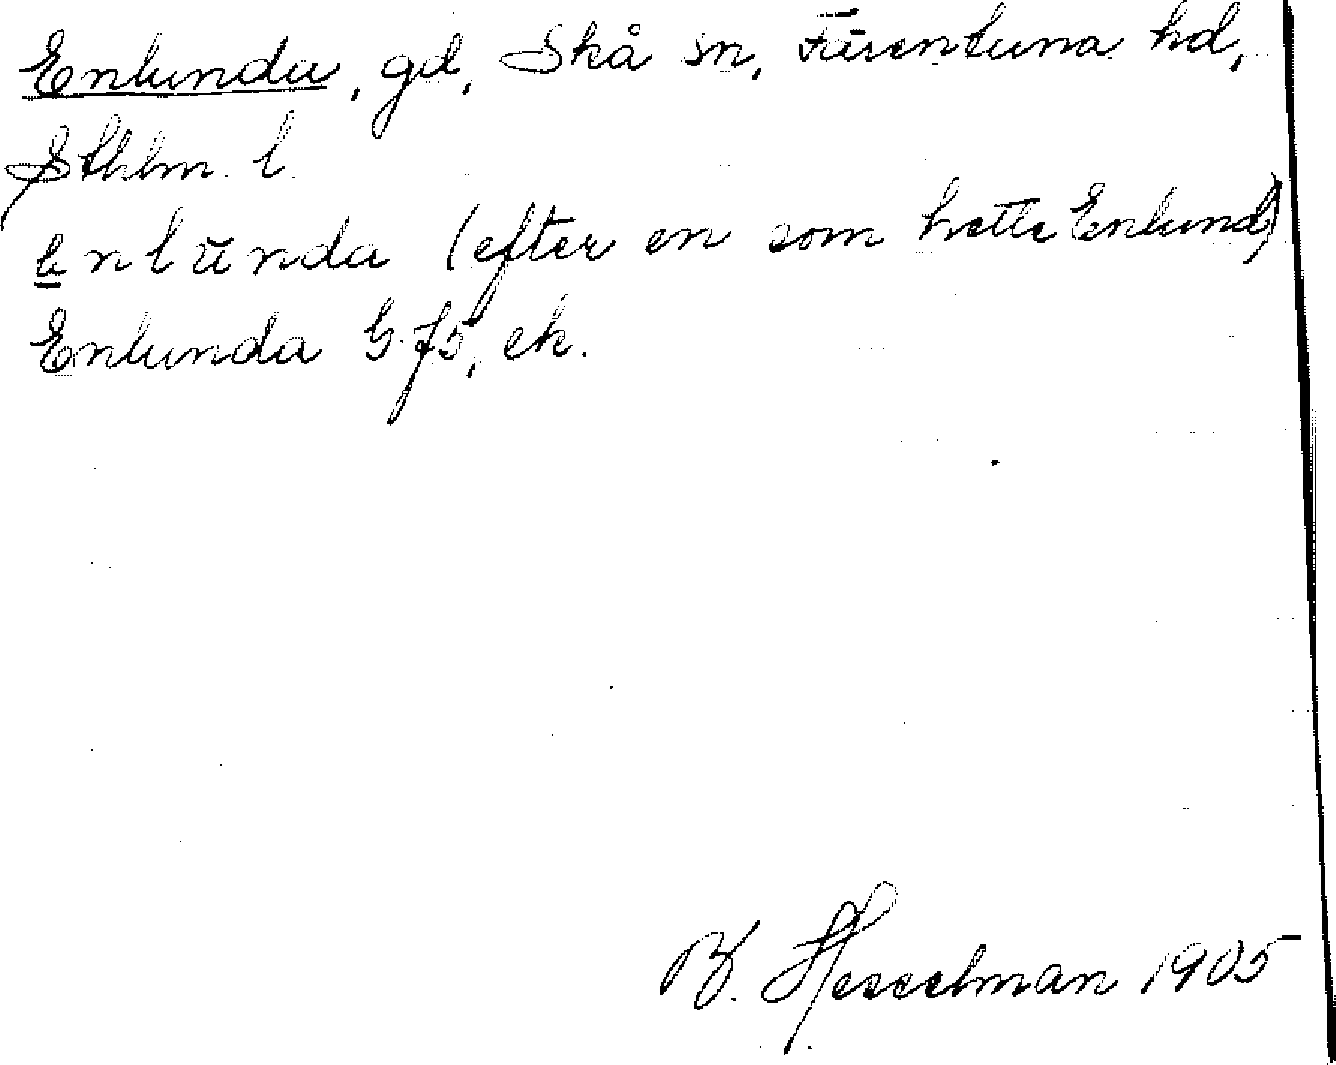 Enlunda, gd, Skå sn, Färentuna hd,
Sthlm. l.
enlunda (efter en som hette Enlund)
Enlunda G. 75, ek.
B. Hesselman 1905